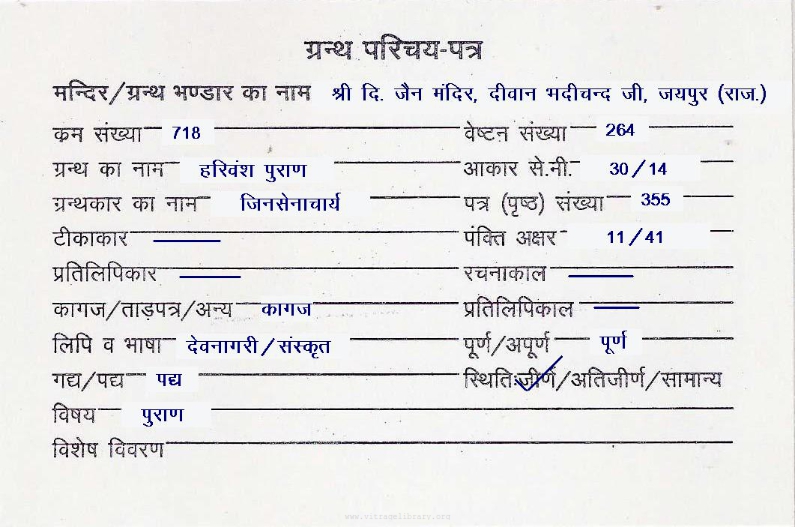 ग्रन्थ परिचय-पत्र
मन्दिर/ग्रन्थ भण्डार का नाम श्री दि. जैन मंदिर, दीवान भदीचन्द जी, जयपुर (राज.)
कम संख्या 718 वेष्टन संख्या 264
ग्रन्थ का नाम हरिवंश पुराण आकार से.मी. 30/14
ग्रन्थकार का नाम जिनसेनाचार्य पत्र (पृष्ठ) संख्या 355
टीकाकार —— पंक्ति अक्षर 11/41
प्रतिलिपिकार —— रचनाकाल ——
कागज/ताड़पत्र/अन्य कागज प्रतिलिपिकाल ——
लिपि व भाषा देवनागरी/संस्कृत पूर्ण/अपूर्ण पूर्ण
गद्य/पद्य पद्य स्थितिः जीर्ण/अतिजीर्ण/सामान्य
विषय पुराण
विशेष विवरण